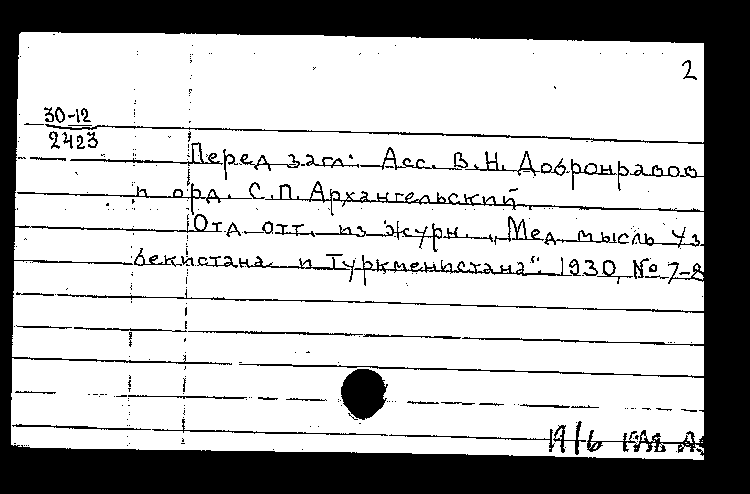 2
30-12
2423
Перед загл: Асс. В.Н. Добронравов
и орд. С.П. Архангельский.
Отд. отт. из журн. „Мед. мысль Уз
бекистана и Туркменистана“. 1930, № 7-8
19/6